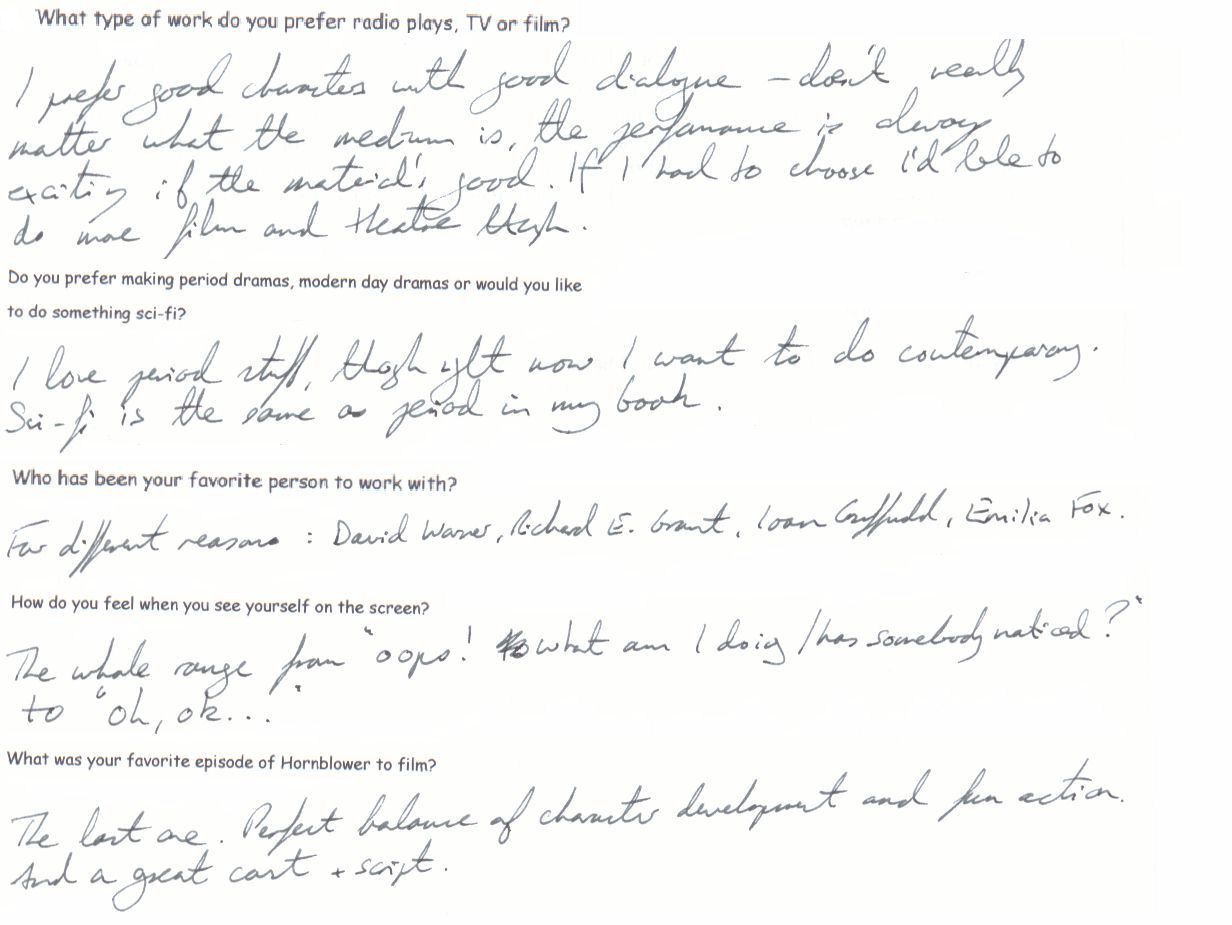 What type of work do you prefer radio plays, TV or film?
I prefer good characters with good dialogue - doesn't really
matter what the medium is, the performance is always
exciting if the material's good. If I had to choose i'd like to
do more film and theatre though.
Do you prefer making period dramas, modern day dramas or would you like
to do something sci-fi?
I love period stuff, though right now I want to do contemporary.
Sci-fi is the same as period in my book.
Who has been your favorite person to work with?
For different reasons : David Warner, Richard E. Grant, Ioan Gruffudd, Emilia Fox.
How do you feel when you see yourself on the screen?
The whole range from "oops! what am I doing / has somebody noticed?"
to "oh, ok..."
What was your favorite episode of Hornblower to film?
The last one. Perfect balance of character development and fun action.
And a great cast + script.